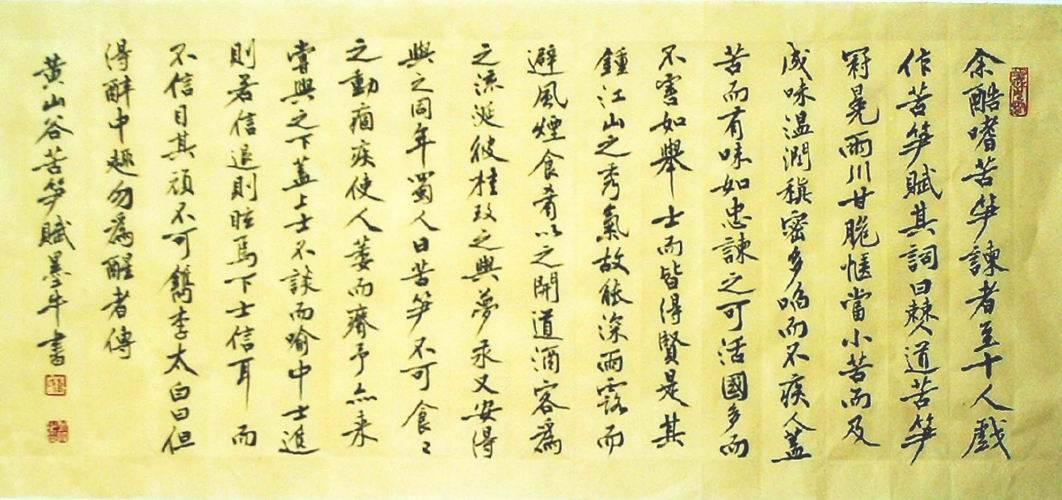 余酷嗜苦笋諫者至十人戲
作苦笋賦其詞曰僰道苦笋
冠冕兩川甘脆惬當小苦而及
成味温潤稹密多啗而不疾人盖
苦而有味如忠諫之可活國多而
不害如舉士而皆得賢是其
鍾江山之秀氣故能深雨露而
避風煙食肴以之開道酒客為
之流涎彼桂玫之與夢永又安得
與之同年蜀人曰苦笋不可食〻
之動痼疾使人萎而瘠予亦未
嘗與之下盖上士不談而喻中士進
則若信退則眩焉下士信耳而
不信目其頑不可鐫李太白曰但
得醉中趣勿為醒者傳
黄山谷苦笋賦墨牛書